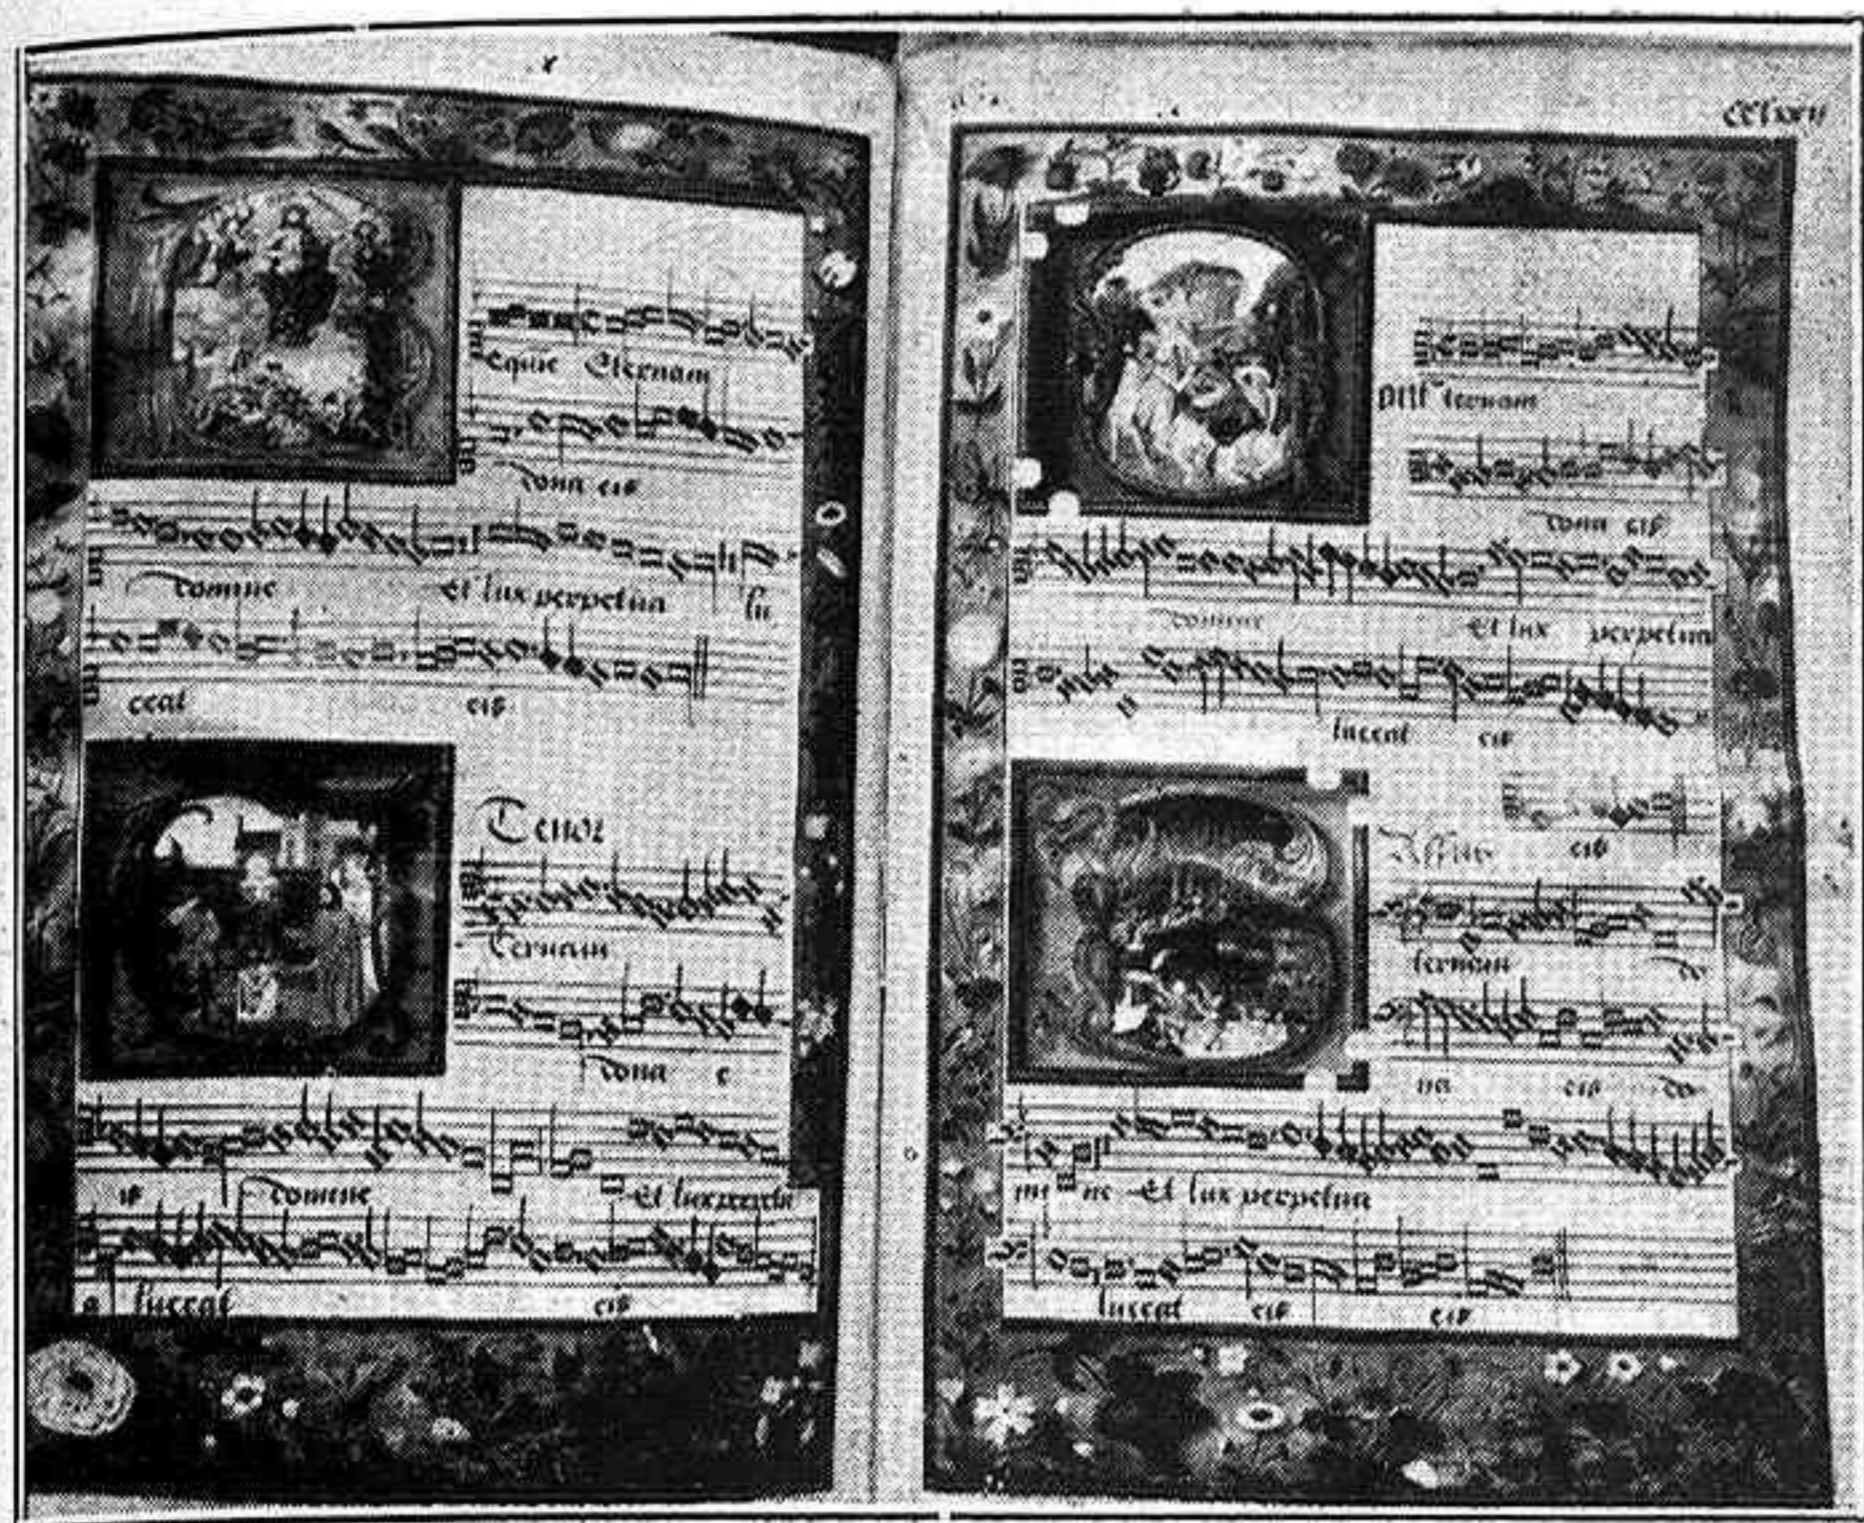 eque Eternam
dona eis
domine Et lux perpetua lu
ceat eis
Tenor
Eternam
dona e
is domine Et lux perpetu
a luceat eis
ternam
dona eis
domine Et lux perpetua
luceat eis
eis
ternam do
na eis do
mi ne Et lux perpetua
luceat eis eis